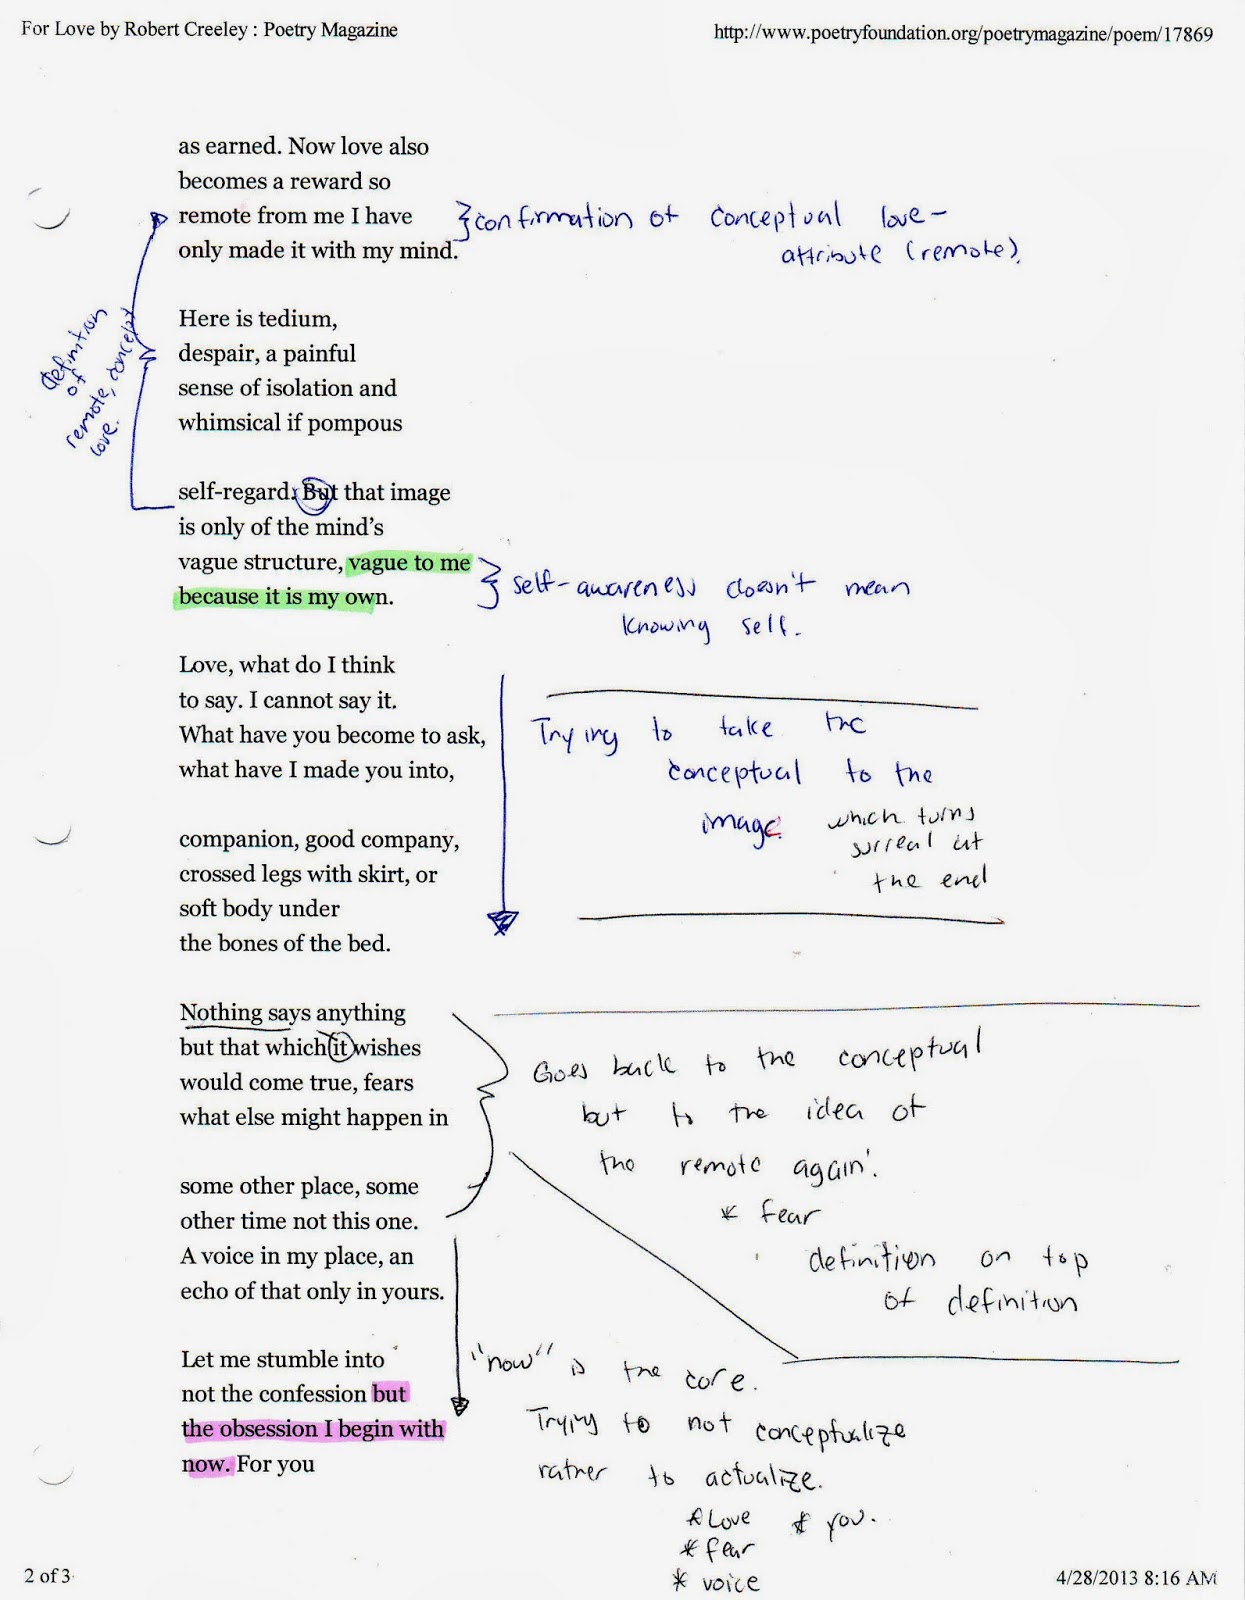 For Love by Robert Creeley : Poetry Magazine
http://www.poetryfoundation.org/poetrymagazine/poem/17869
as earned. Now love also
becomes a reward so
remote from me I have
only made it with my mind.
}confirmation of conceptual love-
attribute (remote).
Here is tedium,
despair, a painful
sense of isolation and
whimsical if pompous
definition
of
remote, concept
love.
self-regard. But that image
is only of the mind's
vague structure, vague to me
because it is my own.
self-awareness doesn't mean
knowing self.
Love, what do I think
to say. I cannot say it.
What have you become to ask,
what have I made you into,
Trying to take the
conceptual to the
image. which turns
surreal at
the end
companion, good company,
crossed legs with skirt, or
soft body under
the bones of the bed.
Nothing says anything
but that which it wishes
would come true, fears
what else might happen in
Goes back to the conceptual
but to the idea of
the remote again.
* fear
definition on top
of definition
some other place, some
other time not this one.
A voice in my place, an
echo of that only in yours.
Let me stumble into
not the confession but
the obsession I begin with
now. For you
"now" is the core.
Trying to not conceptualize
rather to actualize.
* Love * you.
* fear
* voice
2 of 3
4/28/2013 8:16 AM